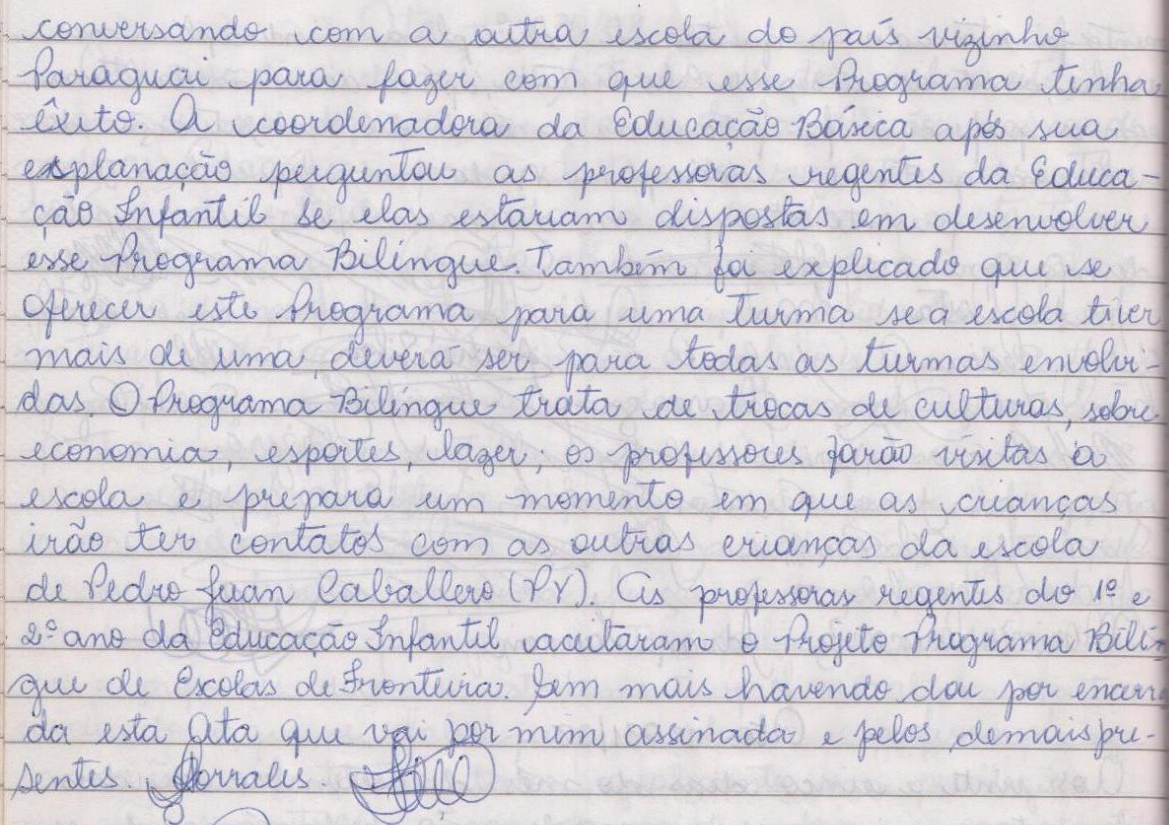 conversando com a outra escola do país vizinho
Paraguai para fazer com que esse Programa tenha
êxito. A coordenadora da Educação Básica após sua
explanação perguntou as professoras regentes da Educa-
ção Infantil se elas estariam dispostas em desenvolver
esse Programa Bilíngue. Também foi explicado que se
oferecer este Programa para uma turma se a escola tiver
mais de uma, deverá ser para todas as turmas envolvi-
das. O Programa Bilíngue trata de trocas de culturas, sobre
economia, esportes, lazer; os professores farão visitas a
escola e prepara um momento em que as crianças
irão ter contatos com as outras crianças da escola
de Pedro Juan Caballero (PY). As professoras regentes do 1º e
2º ano da Educação Infantil aceitaram o Projeto Programa Bilín-
gue de Escolas de Fronteira. Sem mais havendo dou por encerra
da esta Ata que vai por mim assinada e pelos demais pre-
sentes.